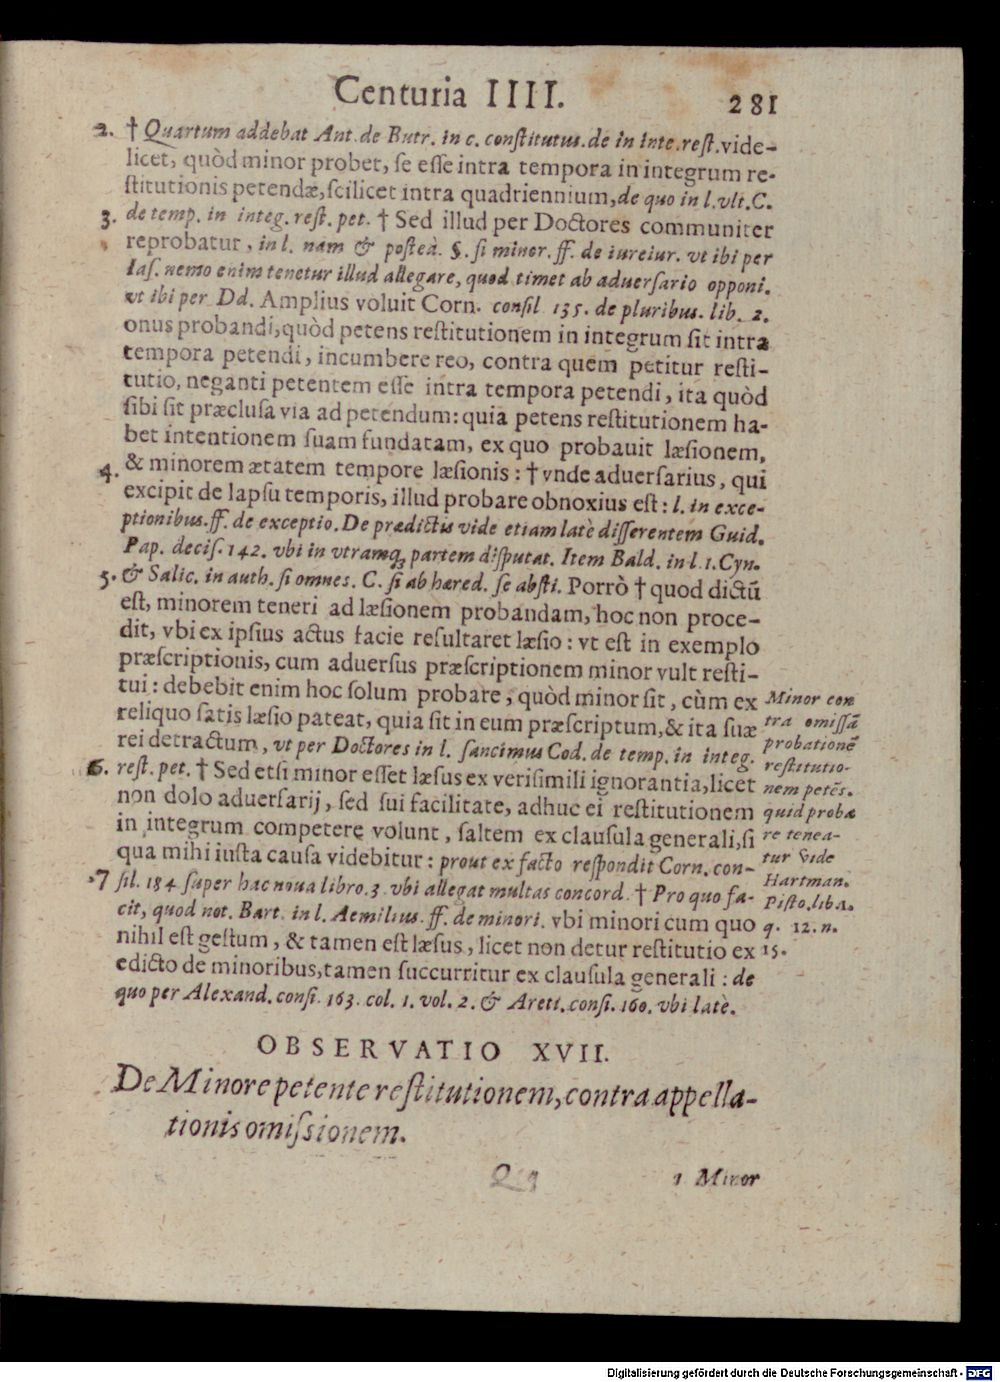 Centuria IIII. 281
2. † Quartum addebat Ant. de Butr. in c. constitutus. de in inte. rest. vide-
licet, quòd minor probet, se esse intra tempora in integrum re-
stitutionis petendæ, scilicet intra quadriennium, de quo in l. vlt. C.
3. de temp. in integ. rest. pet. † Sed illud per Doctores communiter
reprobatur, in l. nam & posteà. §. si minor. ff. de iureiur. vt ibi per
Ias. nemo enim tenetur illud allegare, quod timet ab aduersario opponi.
vt ibi per Dd. Amplius voluit Corn. consil 135. de pluribus. lib. 2.
onus probandi, quòd petens restitutionem in integrum sit intra
tempora petendi, incumbere reo, contra quem petitur resti-
tutio, neganti petentem esse intra tempora petendi, ita quòd
sibi sit præclusa via ad petendum: quia petens restitutionem ha-
bet intentionem suam fundatam, ex quo probauit læsionem,
4. & minorem ætatem tempore læsionis: † vnde aduersarius, qui
excipit de lapsu temporis, illud probare obnoxius est: l. in exce-
ptionibus. ff. de exceptio. De prædictis vide etiam latè disserentem Guid.
Pap. decis. 142. vbi in vtramq; partem disputat. Item Bald. in l. 1. Cyn.
5. & Salic. in auth. si omnes. C. si ab hæred. se absti. Porrò † quod dictū
est, minorem teneri ad læsionem probandam, hoc non proce-
dit, vbi ex ipsius actus facie resultaret læsio: vt est in exemplo
præscriptionis, cum aduersus præscriptionem minor vult resti-
tui: debebit enim hoc solum probare, quòd minor sit, cùm ex
reliquo satis læsio pateat, quia sit in eum præscriptum, & ita suæ
rei detractum, vt per Doctores in l. sancimus Cod. de temp. in integ.
6. rest. pet. † Sed etsi minor esset læsus ex verisimili ignorantia, licet
non dolo aduersarij, sed sui facilitate, adhuc ei restitutionem
in integrum competere volunt, saltem ex clausula generali, si
qua mihi iusta causa videbitur: prout ex facto respondit Corn. con-
7 sil. 184 super hac noua libro. 3. vbi allegat multas concord. † Pro quo fa-
cit, quod not. Bart. in l. Aemilius. ff. de minori. vbi minori cum quo
nihil est gestum, & tamen est læsus, licet non detur restitutio ex
edicto de minoribus, tamen succurritur ex clausula generali: de
quo per Alexand. consi. 163. col. 1. vol. 2. & Areti. consi. 160. vbi latè.
Minor con
tra omissā
probationē
restitutio-
nem petēs.
quid proba
re tenea-
tur vide
Hartman.
Pisto. lib. 1.
q. 12. n.
15.
OBSERVATIO XVII.
De Minore petente restitutionem, contra appella-
tionis omissionem.
1 Minor
Digitalisierung gefördert durch die Deutsche Forschungsgemeinschaft - DFG